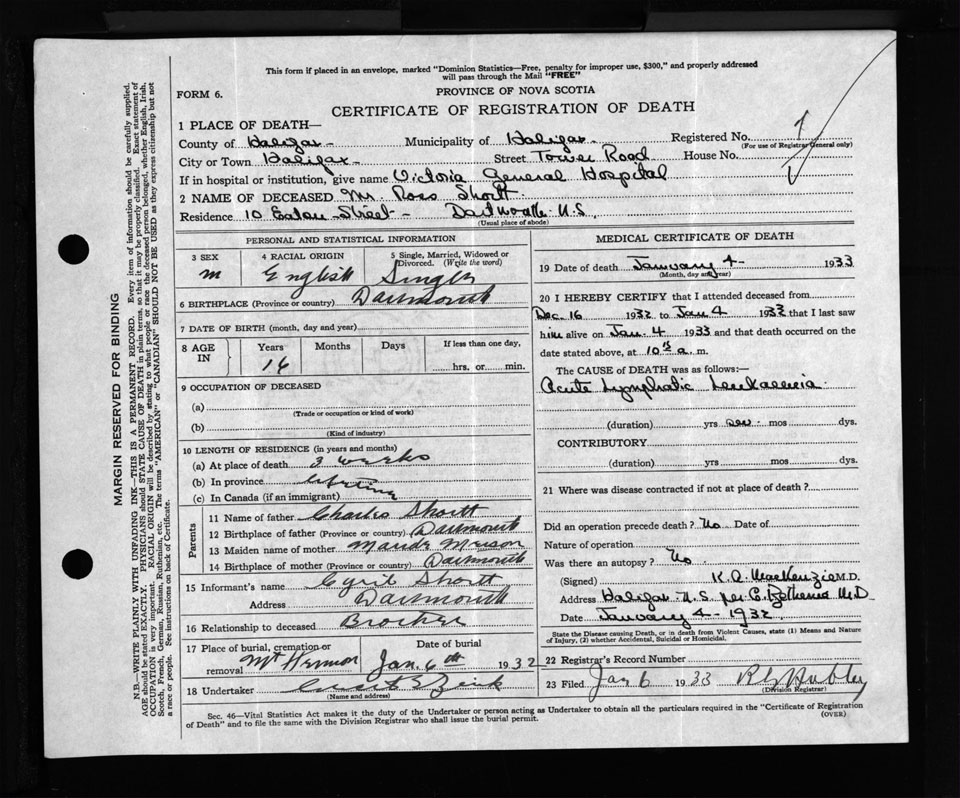 This form if placed in an envelope, marked "Dominion Statistics—Free, penalty for improper use, $300," and properly addressed
will pass through the Mail "FREE"
FORM 6.
PROVINCE OF NOVA SCOTIA
CERTIFICATE OF REGISTRATION OF DEATH
1 PLACE OF DEATH—
County of Halifax Municipality of Halifax Registered No. 1
(For use of Registrar General only)
City or Town Halifax Street Tower Road House No.
If in hospital or institution, give name Victoria General Hospital
2 NAME OF DECEASED Mr. Ross Shortt
Residence 10 Eaton Street - Dartmouth N.S.
(Usual place of abode)
PERSONAL AND STATISTICAL INFORMATION
3 SEX 4 RACIAL ORIGIN 5 Single, Married, Widowed or Divorced. (Write the word)
m English Single
6 BIRTHPLACE (Province or country) Dartmouth
7 DATE OF BIRTH (month, day and year)
8 AGE IN Years Months Days If less than one day,
16 hrs. or min.
9 OCCUPATION OF DECEASED
(a)
(Trade or occupation or kind of work)
(b)
(Kind of industry)
10 LENGTH OF RESIDENCE (in years and months)
(a) At place of death 3 weeks
(b) In province lifetime
(c) In Canada (if an immigrant)
Parents
11 Name of father Charles Shortt
12 Birthplace of father (Province or country) Dartmouth
13 Maiden name of mother Maude
14 Birthplace of mother (Province or country) Dartmouth
15 Informant's name Cyril Shortt
Address Dartmouth
16 Relationship to deceased Brother
17 Place of burial, cremation or removal Mt Hermon Date of burial Jan. 6th 1932
18 Undertaker
(Name and address)
MEDICAL CERTIFICATE OF DEATH
19 Date of death January 4 - 1933
(Month, day and year)
20 I HEREBY CERTIFY that I attended deceased from
Dec. 16 1932 to Jan 4 1933 that I last saw
him alive on Jan. 4 1933 and that death occurred on
date stated above, at 10 a. m.
The CAUSE OF DEATH was as follows:—
Acute Lymphatic Leukaemia
(duration) yrs mos dys.
CONTRIBUTORY
(duration) yrs mos dys.
21 Where was disease contracted if not at place of death?
Did an operation precede death? No Date of
Nature of operation
Was there an autopsy? No
(Signed) K. A. MacKenzie M.D.
Address Halifax N.S. per M.D
Date January 4 - 1932
State the Disease causing Death, or in death from Violent Causes, state (1) Means and Nature
of Injury, (2) whether Accidental, Suicidal or Homicidal.
22 Registrar's Record Number
23 Filed Jan 6 1933 Hubley
(Division Registrar)
Sec. 46—Vital Statistics Act makes it the duty of the Undertaker or person acting as Undertaker to obtain all the particulars required in the "Certificate of Registration
of Death" and to file the same with the Division Registrar who shall issue the burial permit.
(OVER)
MARGIN RESERVED FOR BINDING
N.B.—WRITE PLAINLY WITH UNFADING INK—THIS IS A PERMANENT RECORD. Every item of information should be carefully supplied.
AGE should be stated EXACTLY. PHYSICIANS should STATE CAUSE OF DEATH in plain terms, so that it may be properly classified. Exact statement of
OCCUPATION is very important. RACIAL ORIGIN will be described by stating to what people or race the deceased person belonged, whether English, Irish,
Scotch, French, German, Russian, Ruthenian, etc. The terms "AMERICAN" or "CANADIAN" SHOULD NOT BE USED as they express citizenship but not
a race or people. See instructions on back of Certificate.